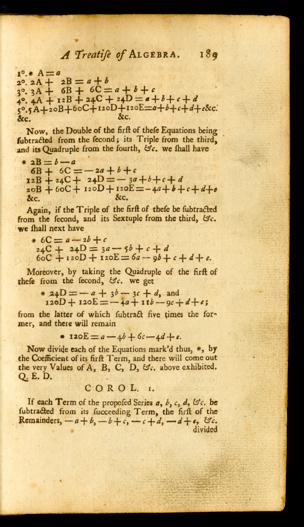 A Treatise of ALGEBRA. 189
1º. * A=a
2º. 2A + 2B = a+b
3º. 3A + 6B + 6C = a + b + c
4º. 4A + 12B + 24C + 24D = a+b+c+d
5º. 5A+20B+60C+120D+120E=a+b+c+d+e&c.
&c. &c.
Now, the Double of the first of these Equations being
subtracted from the second; its Triple from the third,
and its Quadruple from the fourth, &c. we shall have
* 2B = b—a
6B + 6C = — 2a + b + c
12B + 24C + 24D = — 3a+b+c+d
20B + 60C + 120D + 120E = — 4a+b+c+d+e
&c. &c.
Again, if the Triple of the first of these be subtracted
from the second, and its Sextuple from the third, &c.
we shall next have
* 6C = a — 2b + c
24C + 24D = 3a — 5b + c + d
60C + 120D + 120E = 6a — 9b + c + d + e.
Moreover, by taking the Quadruple of the first of
these from the second, &c. we get
* 24D = — a + 3b — 3c + d, and
120D + 120E = — 4a + 11b — 9c + d + e;
from the latter of which subtract five times the for-
mer, and there will remain
* 120E = a — 4b + 6c — 4d + e.
Now divide each of the Equations mark'd thus, *, by
the Coefficient of its first Term, and there will come out
the very Values of A, B, C, D, &c. above exhibited.
Q. E. D.
COROL. 1.
If each Term of the proposed Series a, b, c, d, &c. be
subtracted from its succeeding Term, the first of the
Remainders, —a+b, —b+c, —c+d, —d+e, &c.
divided